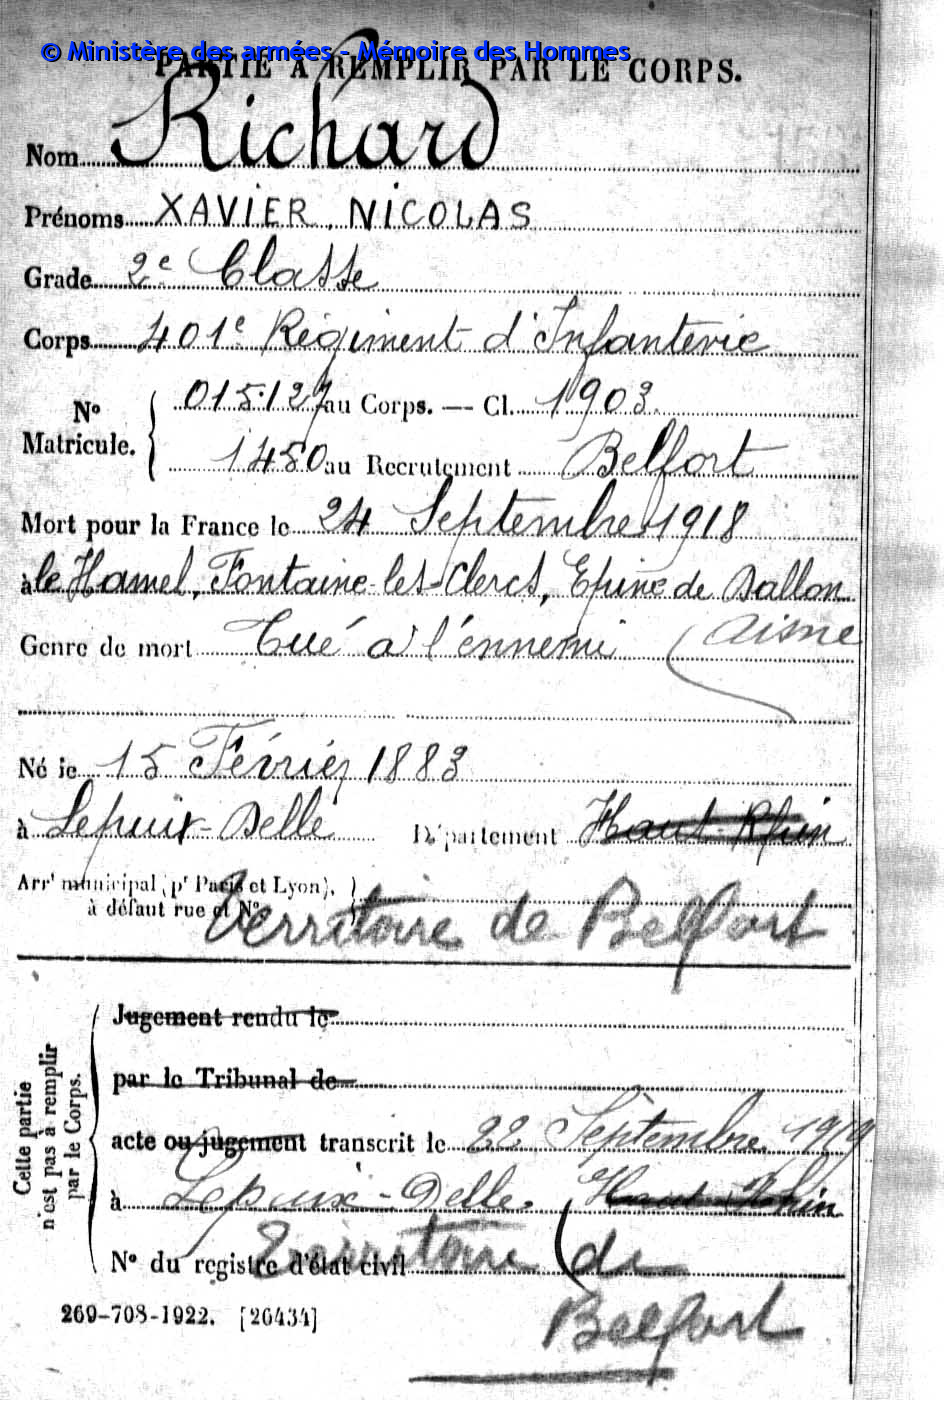 © Ministère des armées - Mémoire des Hommes
PARTIE À REMPLIR PAR LE CORPS.
Nom Richard
Prénoms XAVIER, NICOLAS
Grade 2e Classe
Corps 401e Régiment d'Infanterie
No Matricule. 015.127 au Corps. — Cl. 1903.
1480 au Recrutement Belfort
Mort pour la France le 24 Septembre 1918
à le Hamel, Fontaine-les-Clercs, Epine de Dallon
(Aisne
Genre de mort Tué à l'ennemi
Né le 15 Février 1883
à Lepuix-Delle Département Haut-Rhin
Arrt municipal (pr Paris et Lyon),
à défaut rue et No
Territoire de Belfort
Jugement rendu le
par le Tribunal de
acte ou jugement transcrit le 22 Septembre 1919
à Lepuix-Delle. Haut-Rhin
Territoire (de
No du registre d'état civil
Belfort
Cette partie
n'est pas à remplir
par le Corps.
269-708-1922. [26434]